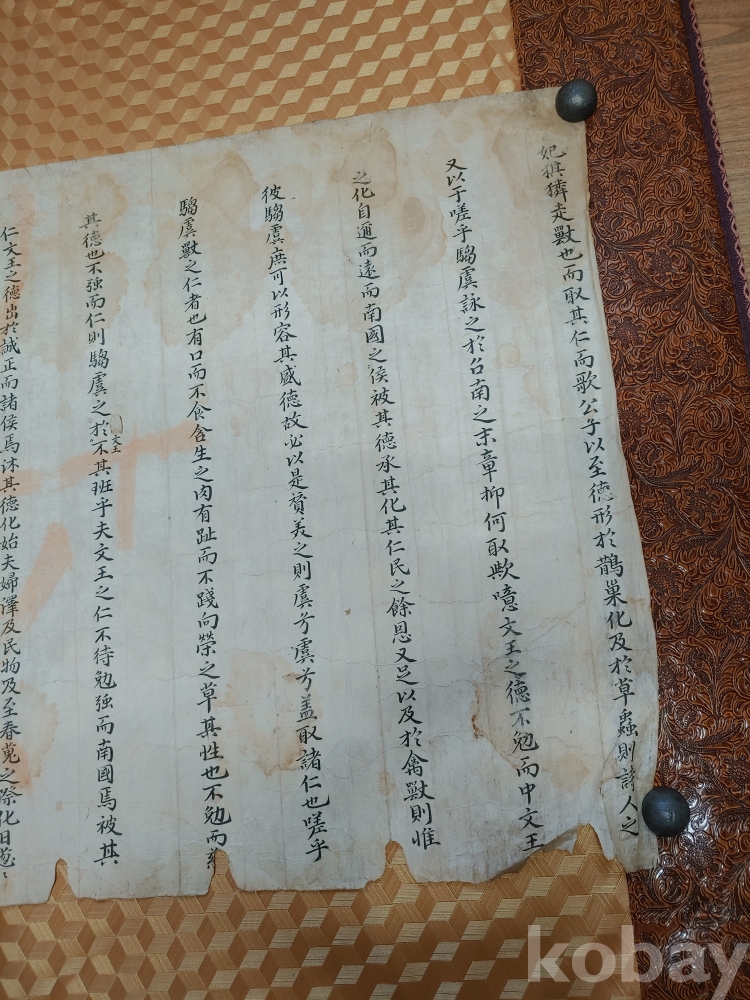 妃猉獜走獸也而取其仁而歌公子以至德形於鵲巢化及於草蟲則詩人之
又以于嗟乎騶虞詠之於召南之末章抑何取歟噫文王之德不勉而中文王
之化自邇而遠而南國之侯被其德承其化其仁民之餘恩又足以及於禽獸則惟
彼騶虞庶可以形容其盛德故必以是賛美之則虞兮虞兮盖取諸仁也嗟乎
騶虞獸之仁者也有口而不食含生之肉有趾而不踐向榮之草其性也不勉而
其德也不强而仁則騶虞之於文王不其班乎夫文王之仁不待勉强而南國焉被其
仁文王之德出於誠正而諸侯焉沐其德化始夫婦澤及民物及至春蒐之際化日
kobay